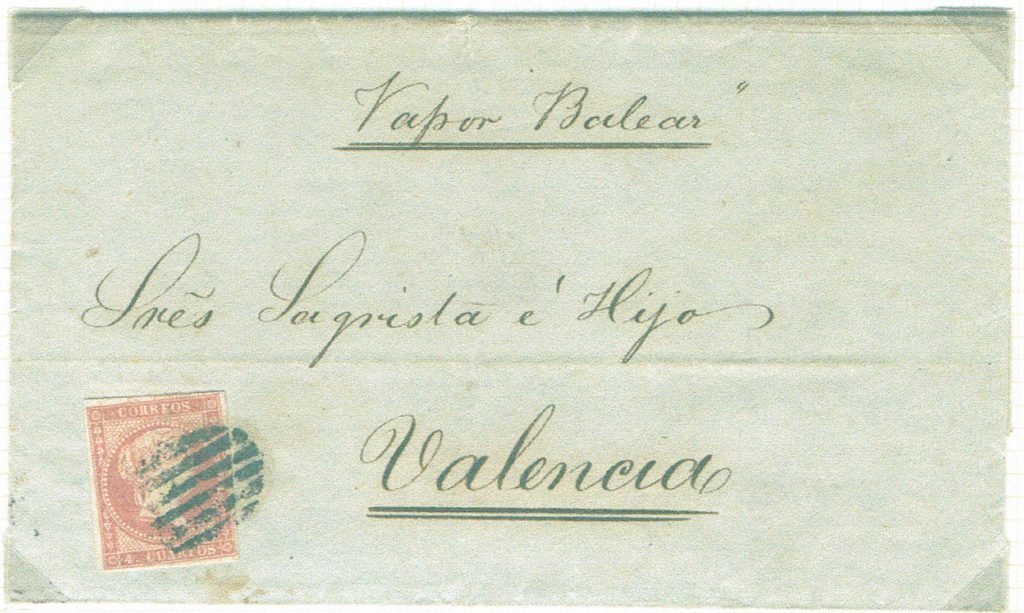 Vapor Balear"
Srēs Sagristā é Hijo
Valencia
CORREOS
4. CUARTOS